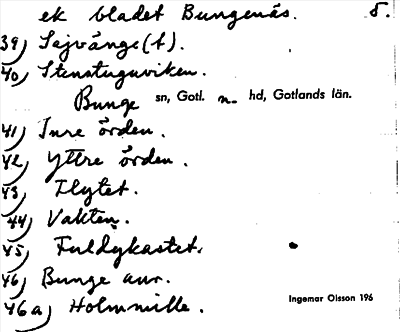 ek bladet Bungenäs. 5.
39) Lejvänge(t).
40) Stenstuguviken.
Bunge sn, Gotl. n. hd, Gotlands län.
41) Inre örden.
42) Yttre örden.
43) Flytet.
44) Vakten.
45) Fuldykastet.
46) Bunge aur.
46a) Holmmille.
Ingemar Olsson 196